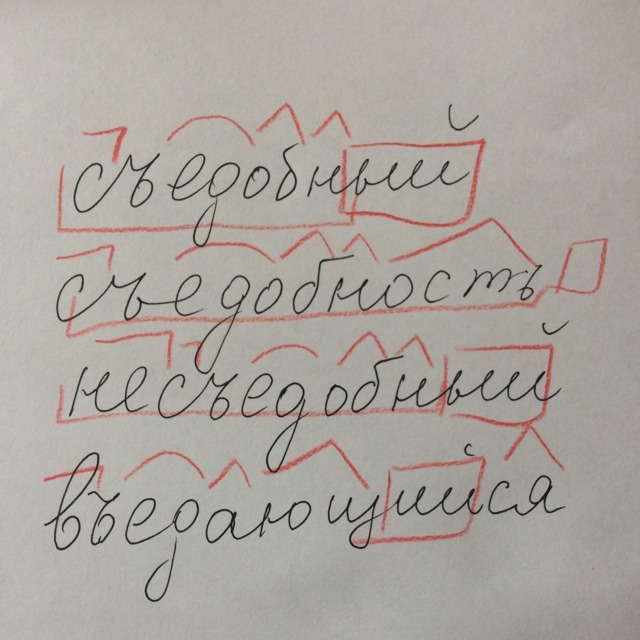 съедобный
съедобность
несъедобный
въедающийся